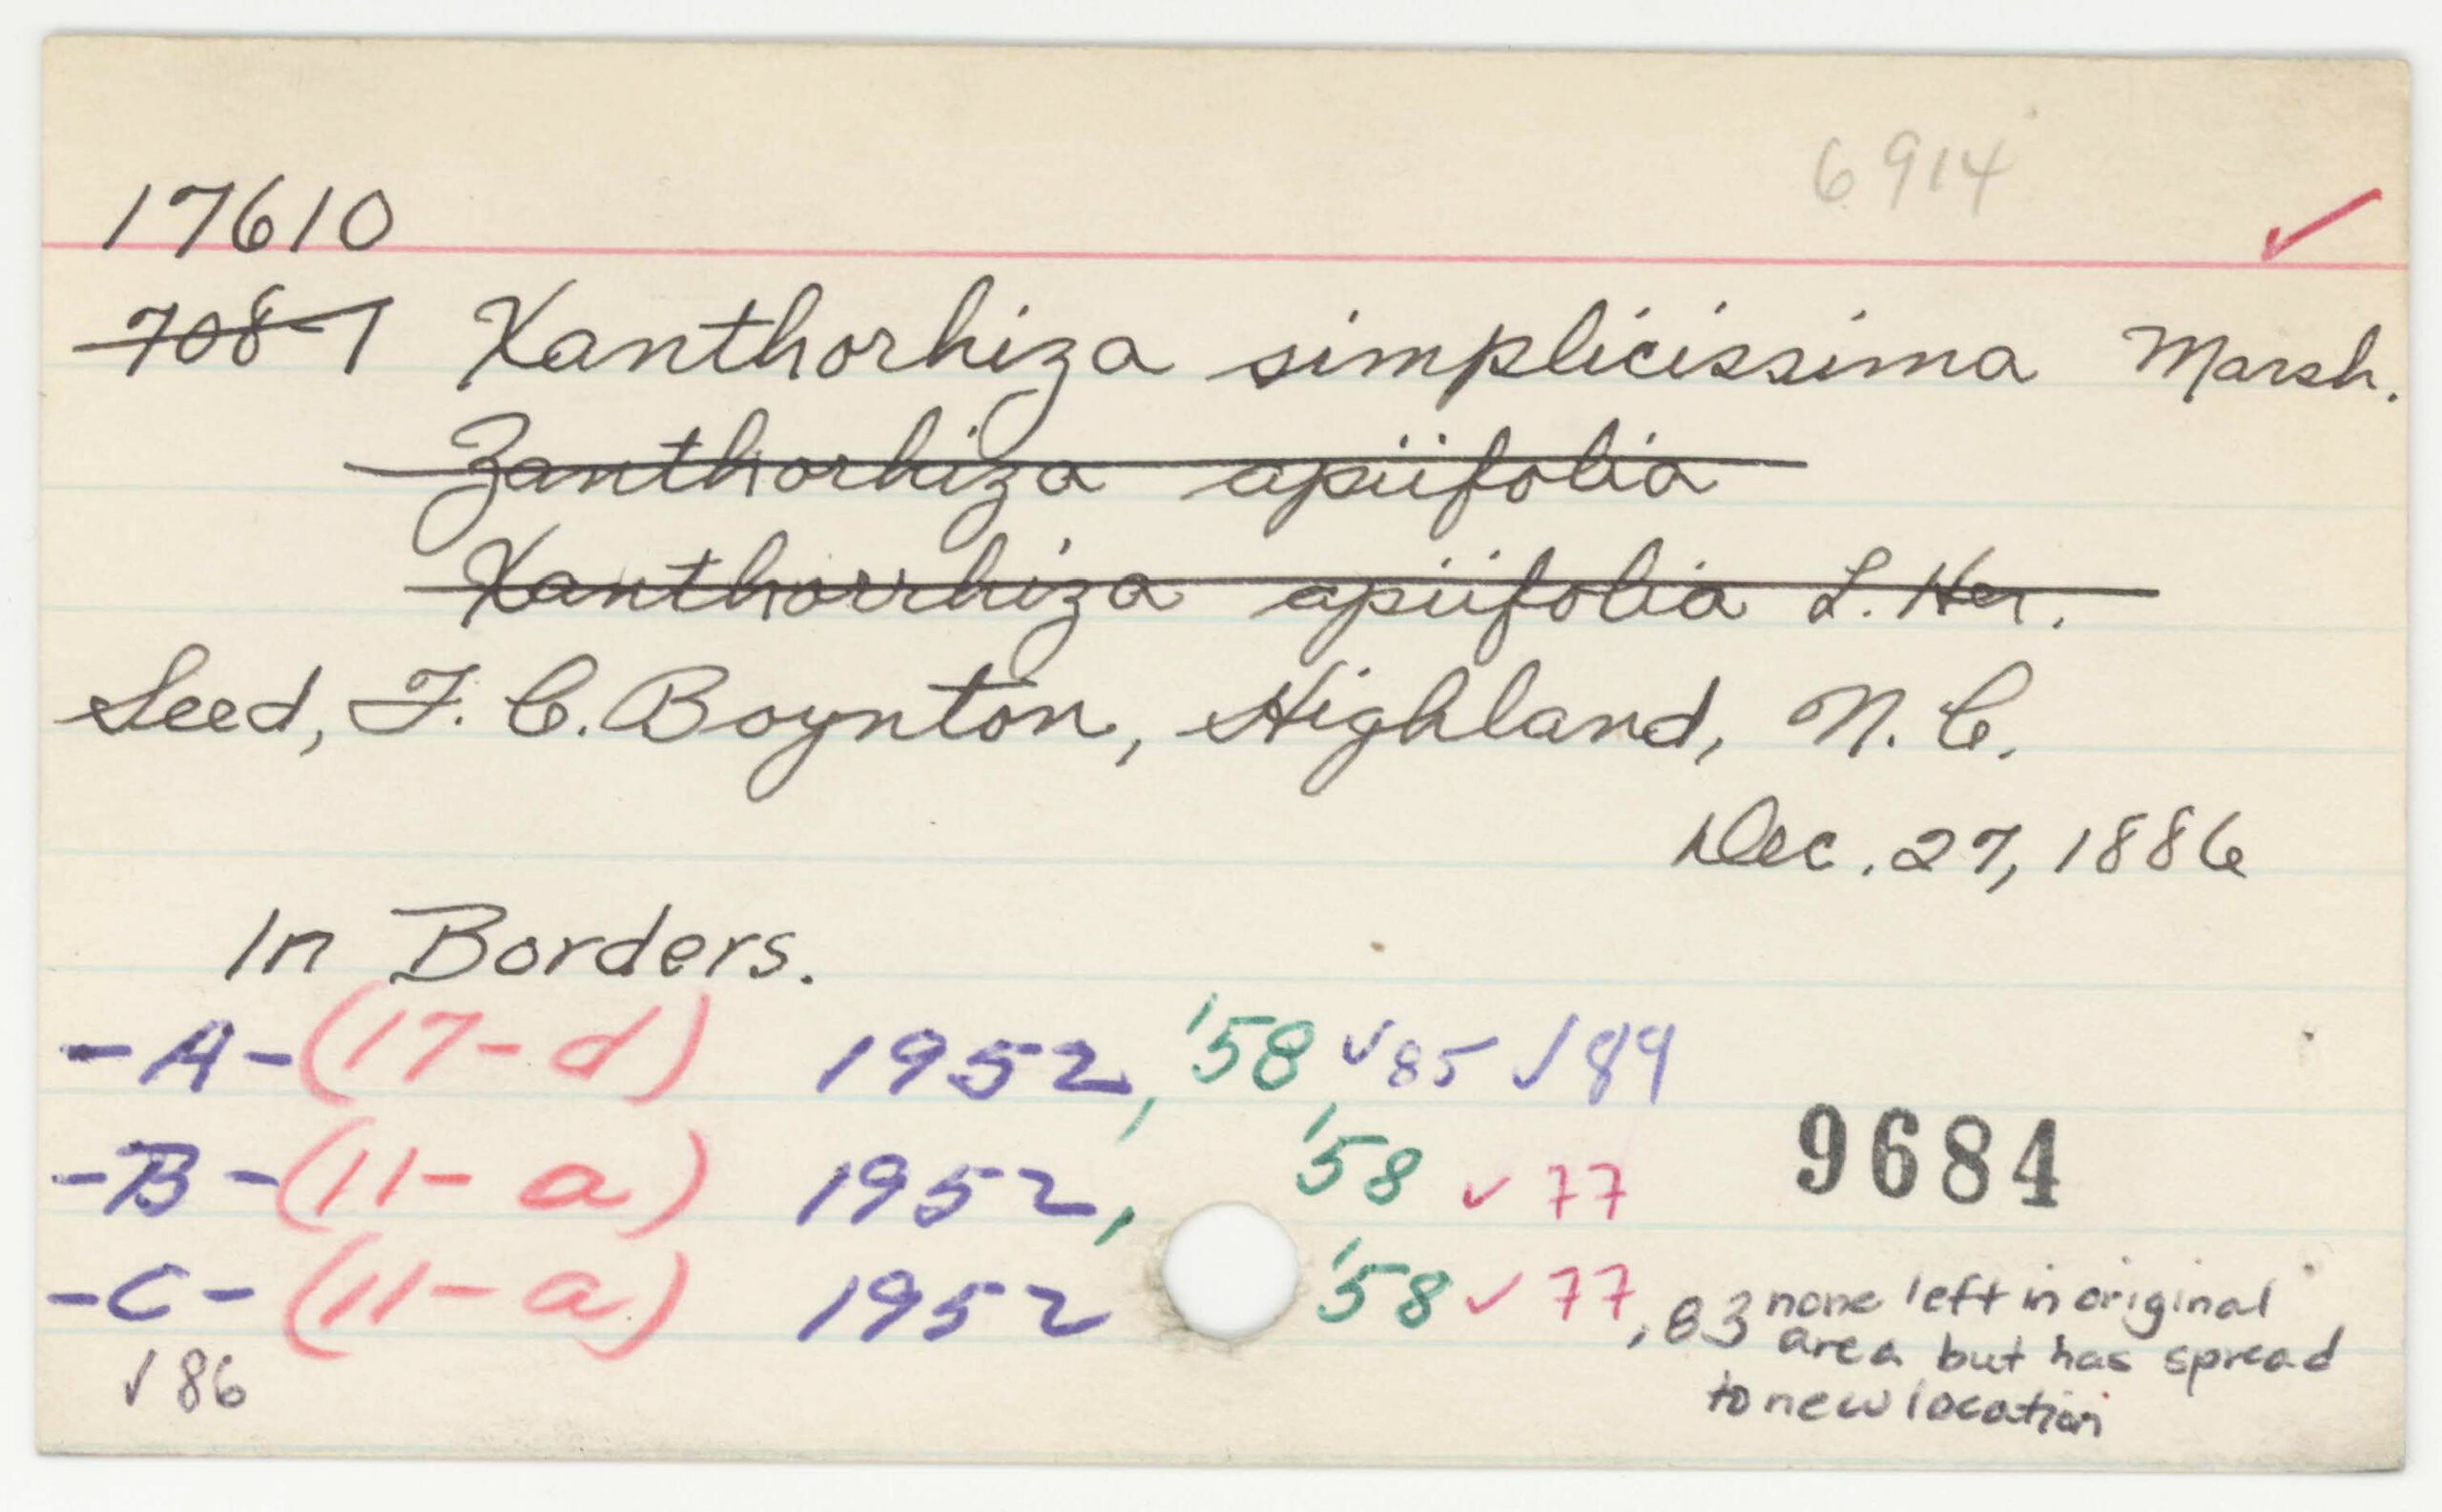 6914
17610 ✓
708-1 Xanthorhiza simplicissima Marsh.
Zanthorhiza apiifolia
Xanthorrhiza apiifolia L. Her.
Seed, F. C. Boynton, Highland, N. C.
Dec. 27, 1886
In Borders.
-A-(17-d) 1952, '58, ✓85 ✓89
-B-(11-a) 1952, '58 ✓ 77
9684
-C-(11-a) 1952 '58 ✓ 77, 83 none left in original
area but has spread
to new location
✓ 86